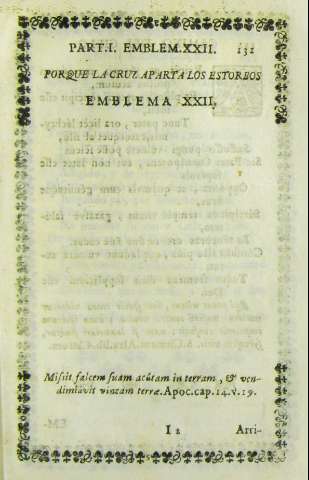 PART.I. EMBLEM.XXII. 131
PORQUE LA CRUZ APARTA LOS ESTORBOS
EMBLEMA XXII.
Misit falcem suam acùtam in terram, & ven-
dimiàvit vineam terræ. Apoc. cap. 14. v. 19.
I 2 Arri-